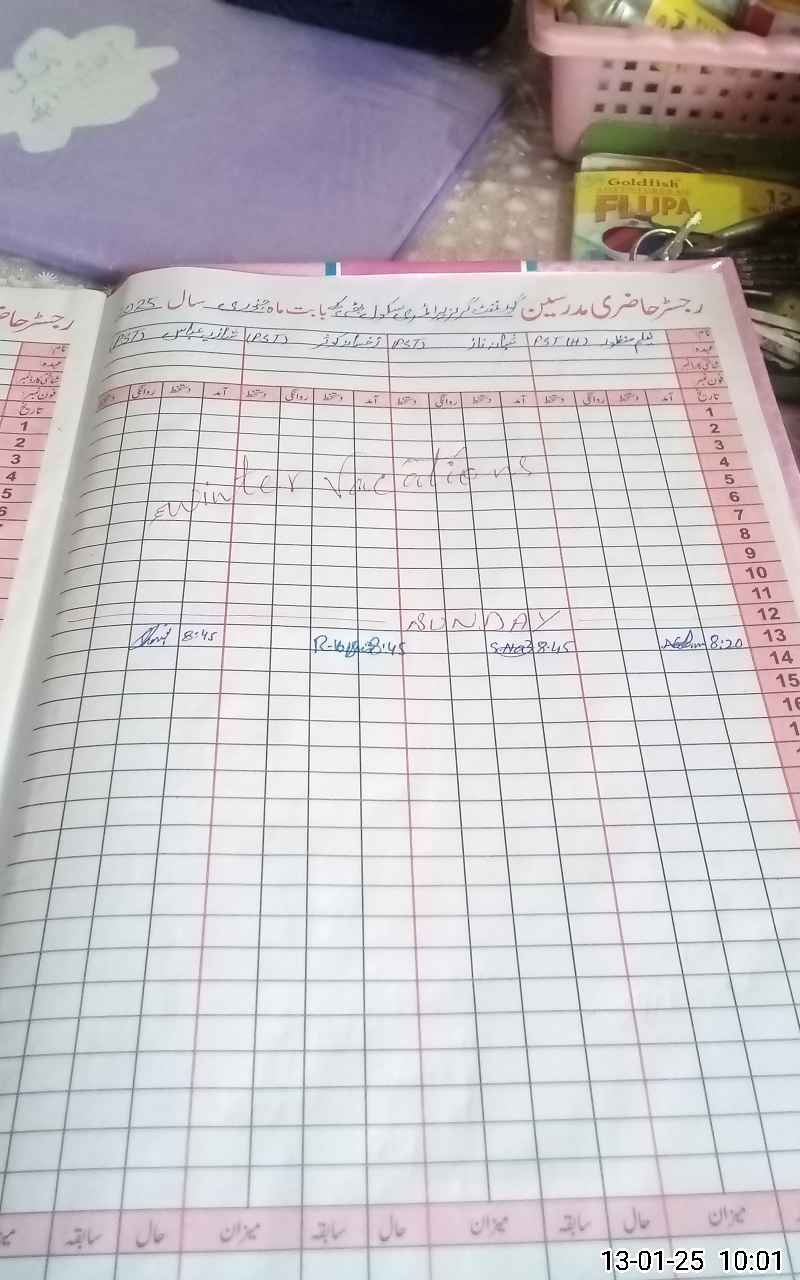 Goldfish
FLUPA
12
رجسٹر حاضری مدرسین گورنمنٹ گرلز پرائمری سکول بابت ماہ جنوری سال 2025
رجسٹر حاضر
نام: نیلم منظور PST (H) شہناز (PST) رخسانہ کوثر (PST) شازیہ عباس (PST)
عہدہ:
شناختی کارڈ نمبر
فون نمبر
تاریخ آمد دستخط روانگی دستخط آمد دستخط روانگی دستخط آمد دستخط روانگی دستخط آمد دستخط روانگی دستخط
1
2
3
4
Winter Vacations
5
6
7
8
9
10
11
12 SUNDAY
13 8:20 8:45 8:45 8:45
14
15
میزان حال سابقہ میزان حال سابقہ میزان حال سابقہ
13-01-25 10:01